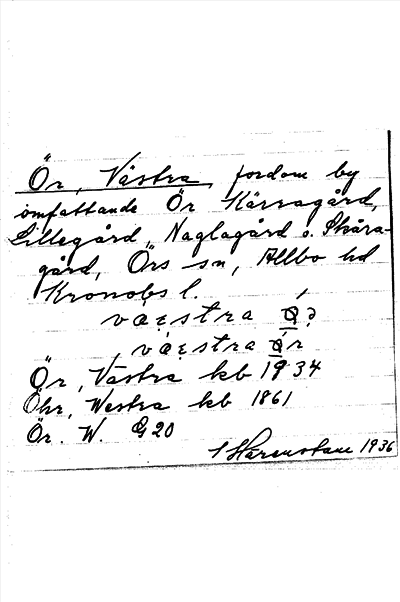 Ör, Västra, fordom by
omfattande Ör Kärragård,
Lillegård, Naglagård o. Skära-
gård, Örs sn, Allbo hd
Kronobs l.
væstra
væstra
Ör, Västra kb 1934
Öhr, Westra kb 1861
Ör. W. G 20
Härenstam 1936